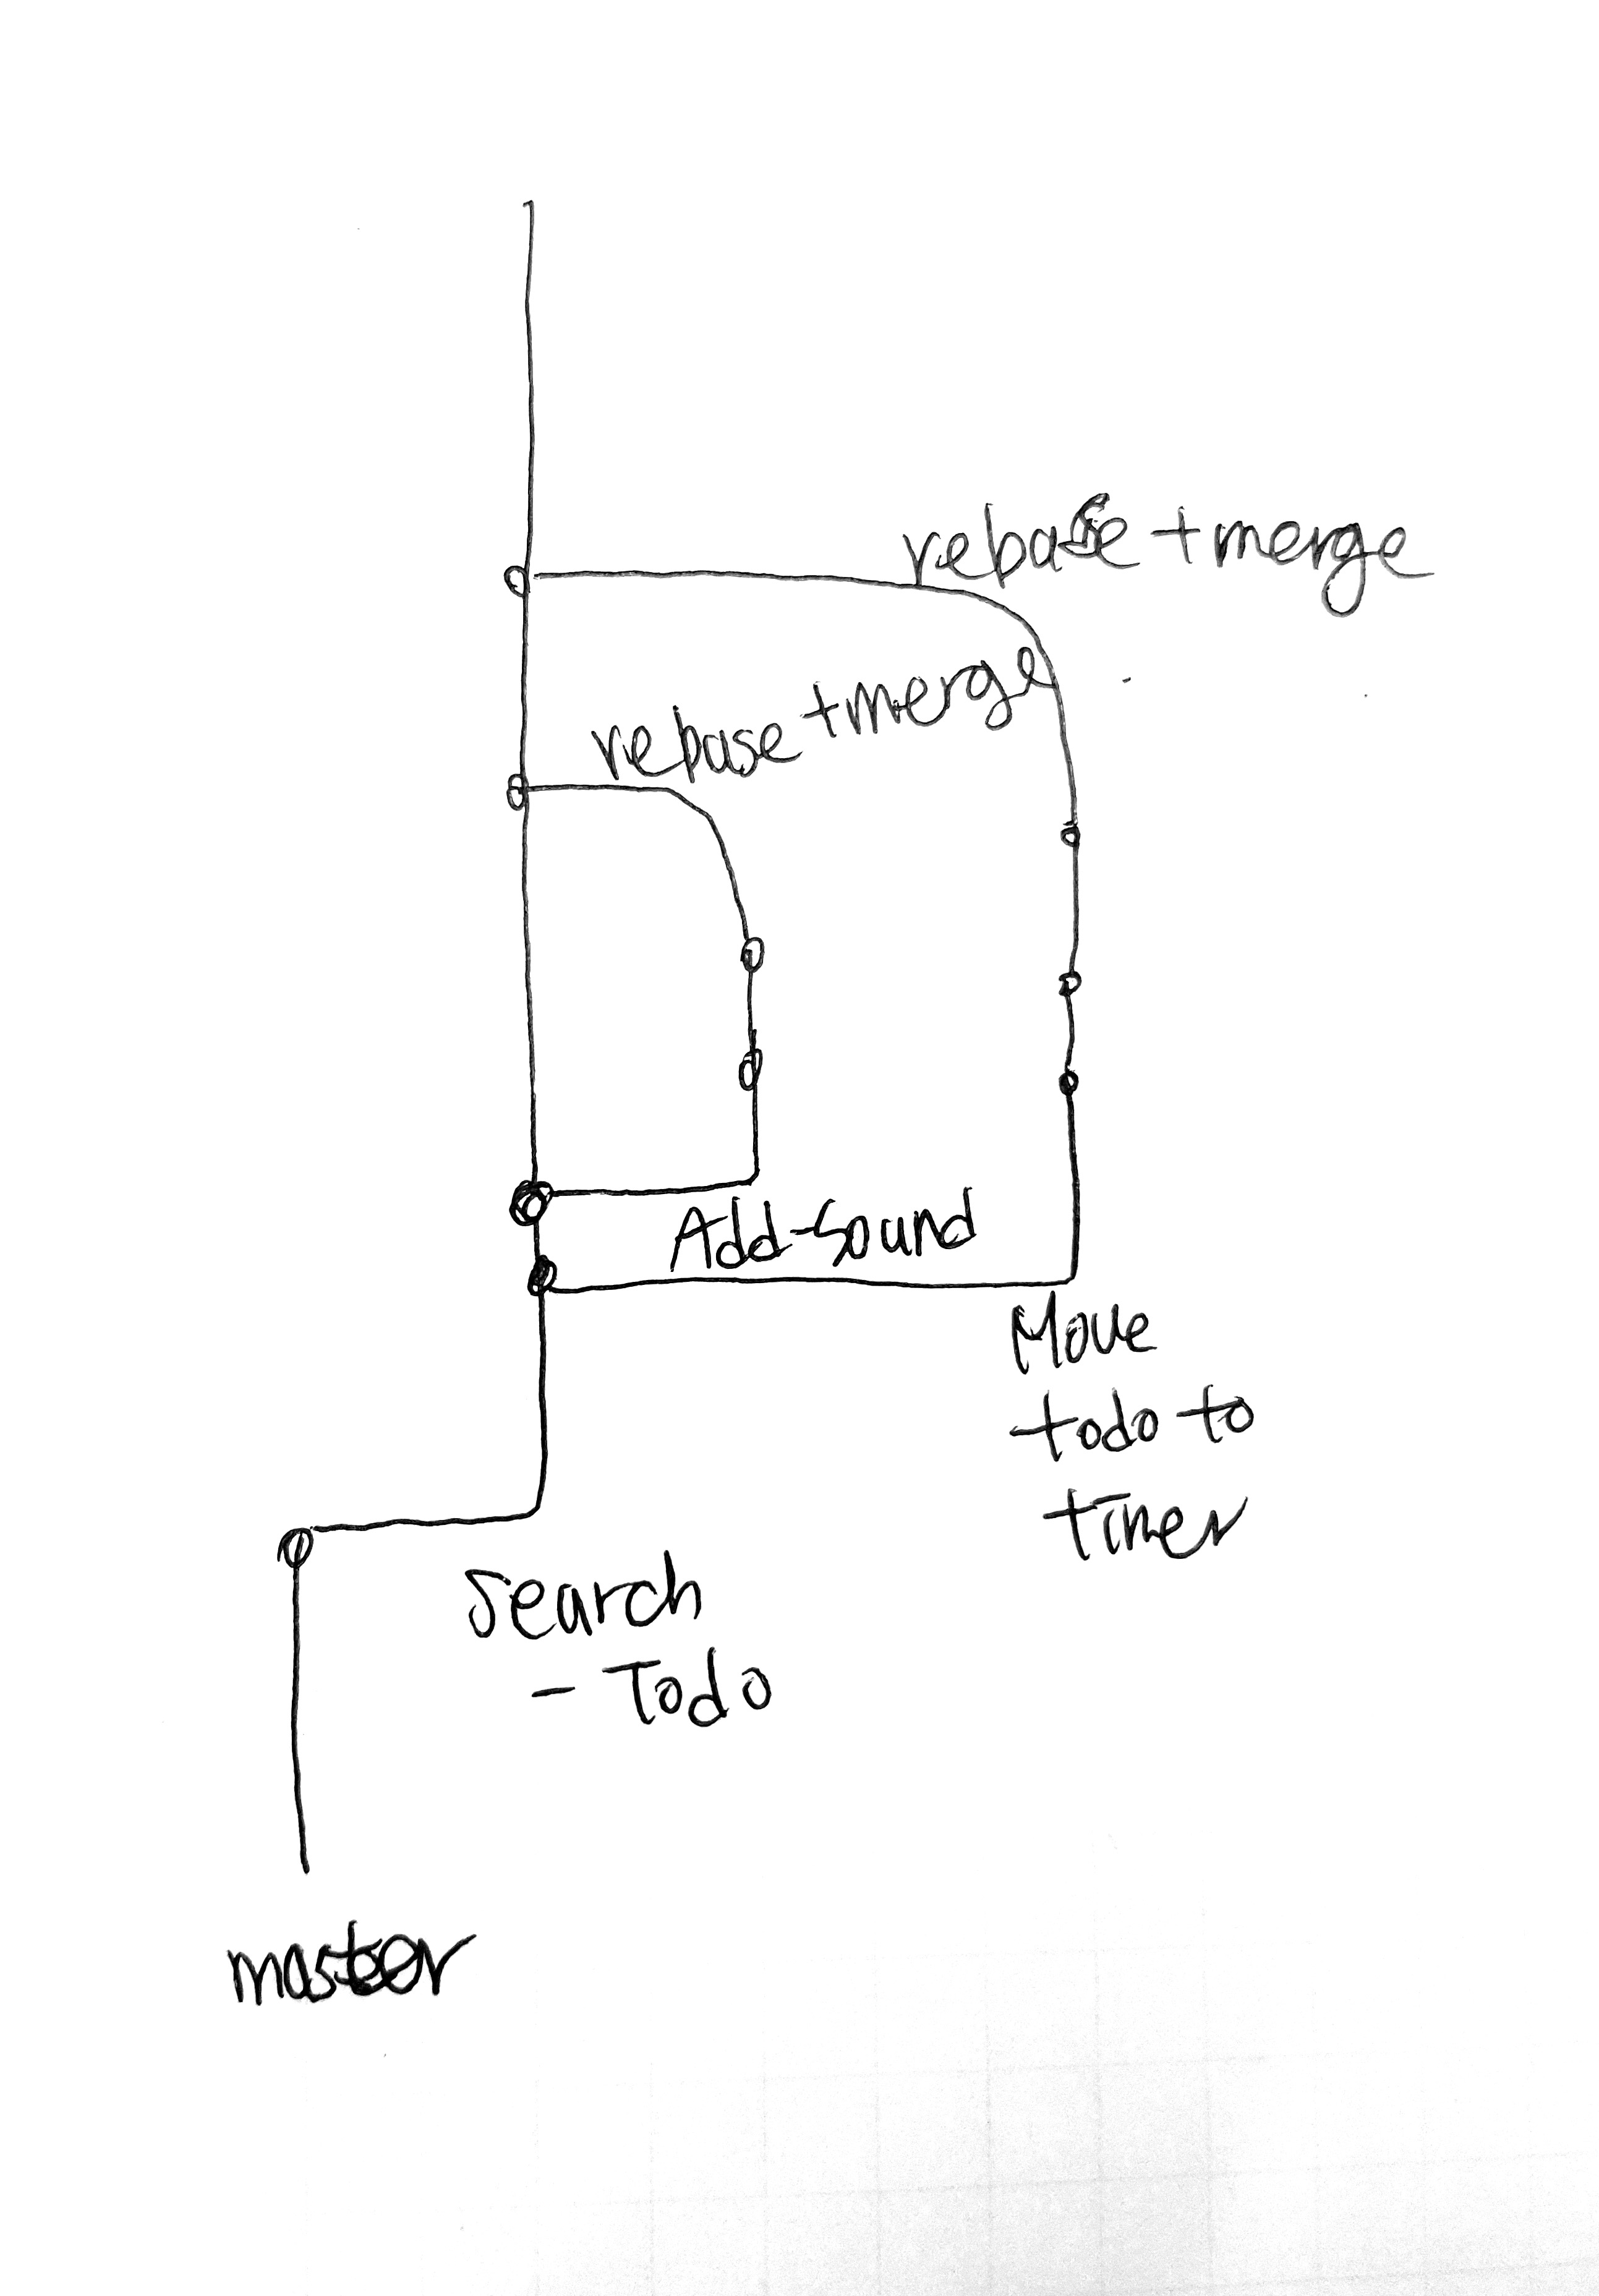 rebase + merge
rebase + merge
Add-Sound
Move
todo to
timer
Search
- Todo
master